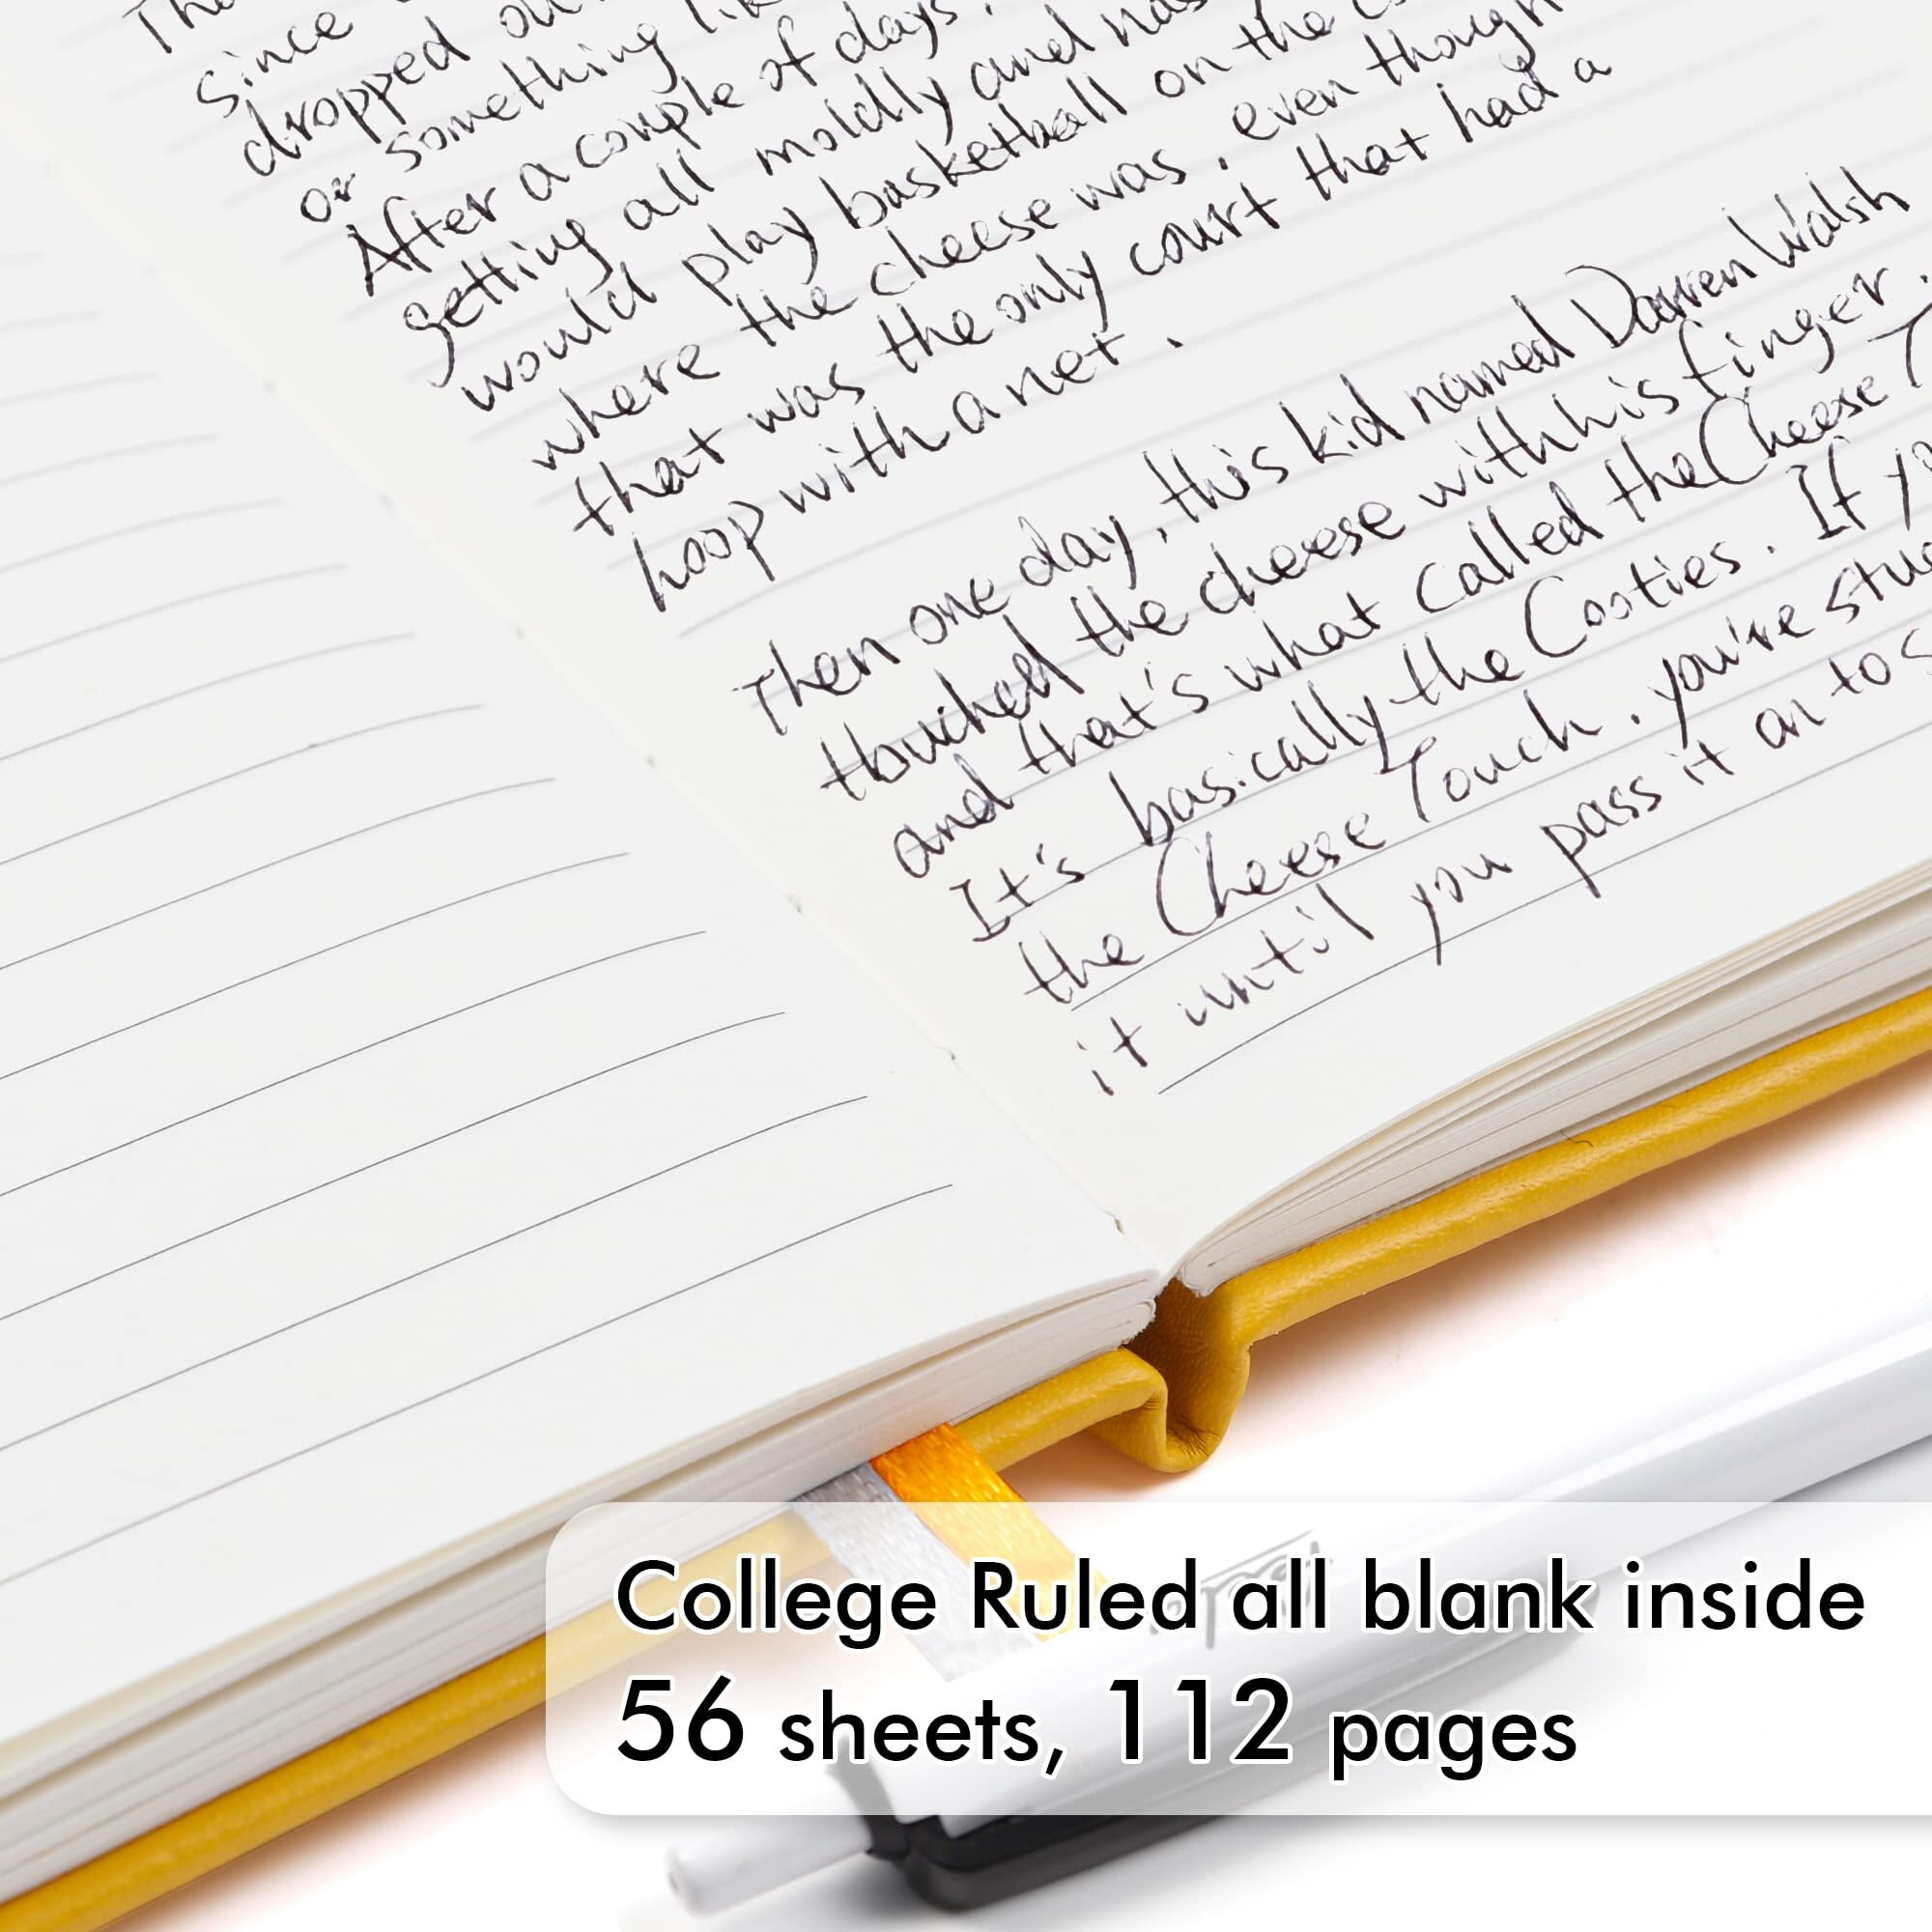 since
dropped
or something
After a couple of days.
getting all moldly and has
would play basketball on the
where the cheese was, even though
that was the only court that had a
hoop with a net.
Then one day, this kid named Darren Walsh
thouched the cheese with his finger.
and that's what called the Cheese T
It's basically the Cooties. If yo
the Cheese Touch, you're stuc
it until you pass it on to s
College Ruled all blank inside
56 sheets, 112 pages